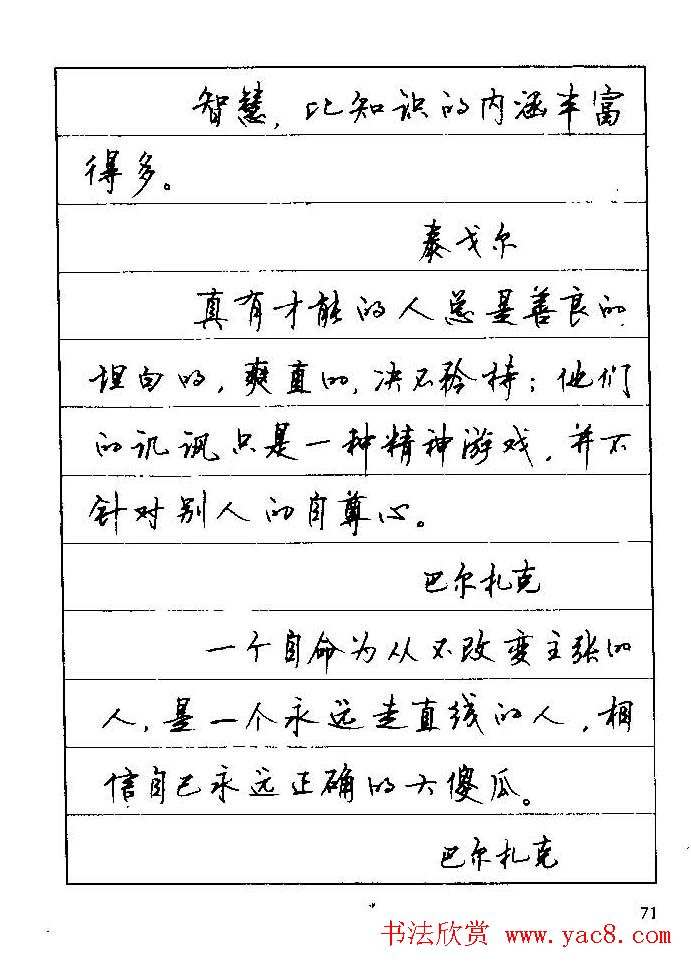 智慧，比知识的内涵丰富
得多。
泰戈尔
真有才能的人总是善良的
坦白的，爽直的，决不矜持；他们
的讥讽只是一种精神游戏，并不
针对别人的自尊心。
巴尔扎克
一个自命为从不改变主张的
人，是一个永远走直线的人，相
信自己永远正确的大傻瓜。
巴尔扎克
71
书法欣赏 www.yac8.com